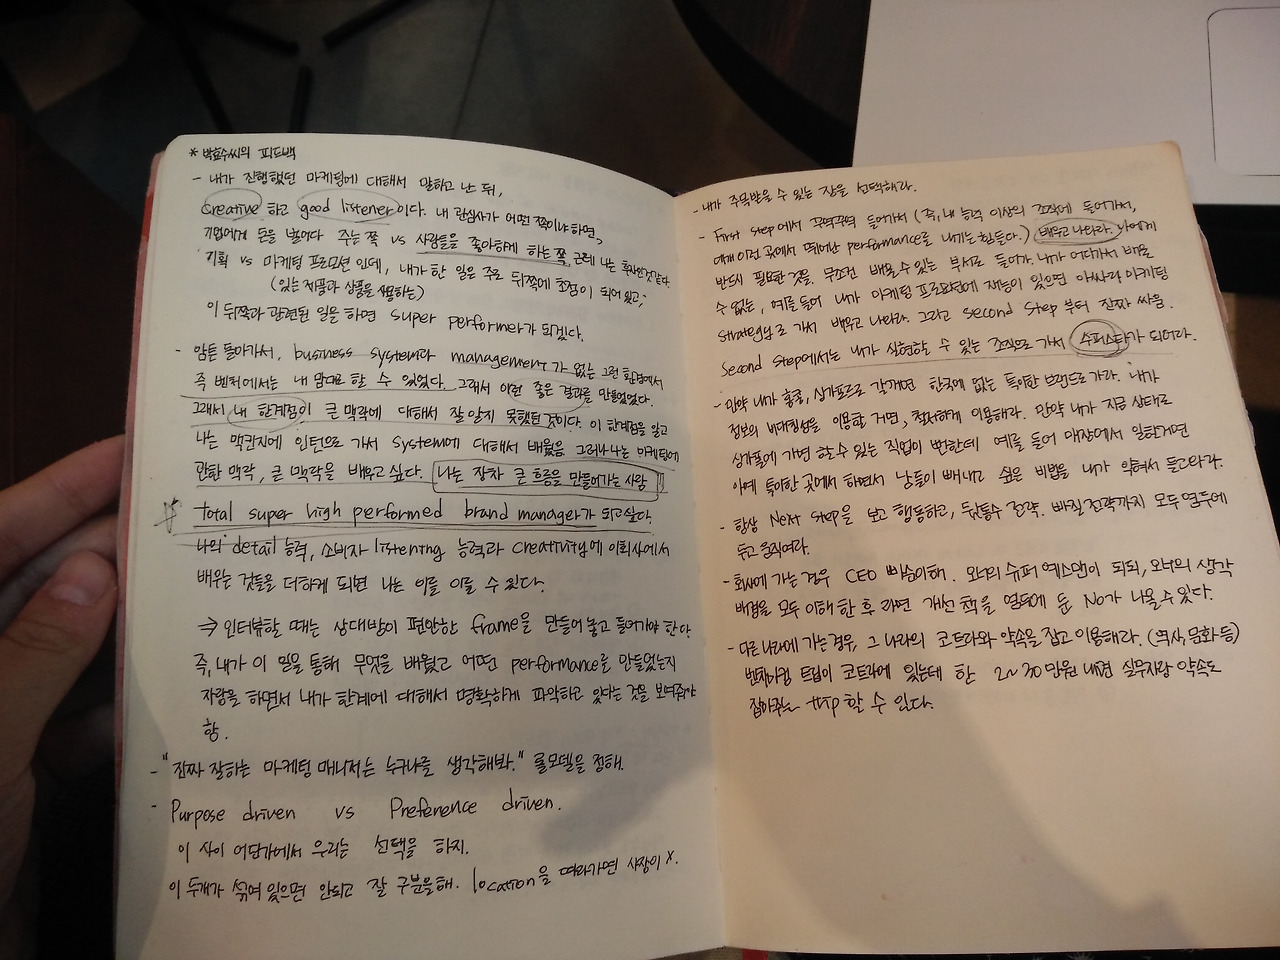 * 박효수씨의 피드백
- 내가 진행했던 마케팅에 대해서 말하고 난 뒤,
creative 하고 good listener이다. 내 관심사가 어떤 쪽이냐 하면,
기업에게 돈을 벌어다 주는 쪽 vs 사람들을 좋아하게 하는 쪽. 근데 나는 후자인것 같다.
기획 vs 마케팅 프로모션 인데, 내가 한 일은 주로 뒤쪽에 초점이 되어 있고,
(있는 제품과 상품을 하는)
이 뒤쪽과 관련된 일을 하면 super performer가 되겠다.
- 암튼 돌아가서, business system과 management가 없는 그런 환경에서
즉 벤처에서는 내 맘대로 할 수 있었다. 그래서 이런 좋은 결과를 만들었었다.
그래서 내 한계점이 큰 맥락에 대해서 잘 알지 못했던 것이다. 이 한계점을 알고
나는 맥킨지에 인턴으로 가서 system에 대해서 배웠음 그러나 나는 마케팅에
관한 맥락, 큰 맥락을 배우고 싶다. 나는 장차 큰 흐름을 만들어가는 사람!!
total super high performed brand manager가 되고싶다.
나의 detail 능력, 소비자 listening 능력과 creativity에 이회사에서
배우는 것들을 더하게 되면 나는 이를 이룰 수 있다.
⇒ 인터뷰할 때는 상대방이 편안한 frame을 만들어 놓고 들어가야 한다
즉, 내가 이 일을 통해 무엇을 배웠고 어떤 performance를 만들었는지
자랑을 하면서 내가 한계에 대해서 명확하게 파악하고 있다는 것을 보여줘야
함.
- "진짜 잘하는 마케팅 매니저는 누구냐를 생각해봐." 롤모델을 정해.
- Purpose driven vs Preference driven.
이 사이 어딘가에서 우리는 선택을 하지.
이 두개가 섞여 있으면 안되고 잘 구분을해. location을 따라가면 사장이 X.
- 내가 주목받을 수 있는 장을 선택해라.
- First step에서 꾸역꾸역 들어가서 (즉, 내 능력 이상의 조직에 들어가서,
대개 이런 곳에서 뛰어난 performance를 내기는 힘들다.) 배우고 나와라. 나에게
반드시 필요한 것을. 무조건 배울 수 있는 부서로 들어가. 내가 어디가서 배울
수 없는, 예를 들어 내가 마케팅 프로모션에 재능이 있으면 아싸리 마케팅
strategy로 가서 배우고 나와라. 그리고 second step 부터 진짜 싸움.
Second step에서는 내가 실현할 수 있는 조직으로 가서 수퍼스타가 되어라.
- 만약 내가 홍콩, 싱가포르로 갈꺼면 한국에 없는 특이한 브랜드로 가라. 내가
정보의 비대칭성을 이용할 거면, 철저하게 이용해라. 만약 내가 지금 상태로
싱가폴에 가면 할 수 있는 직업이 뻔한데 예를 들어 매장에서 일할거면
아예 특이한 곳에서 하면서 남들이 빼내고 싶은 비법을 내가 익혀서 들고와라.
- 항상 Next step을 보고 행동하고, 뒤통수 전략. 빠질 전략까지 모두 염두에
두고 움직여라.
- 회사에 가는 경우 CEO 이해. 오너의 슈퍼 예스맨이 되되, 오너의 생각
배경을 모두 이해 한 후 라면 개선 책을 염두에 둔 No가 나올 수 있다.
- 다른 나라에 가는 경우, 그 나라의 코트라와 약속을 잡고 이용해라. (역사, 문화 등)
벤치마킹 트립이 코트라에 있는데 한 2~30만원 내면 실무자랑 약속도
잡아주는 trip 할 수 있다.